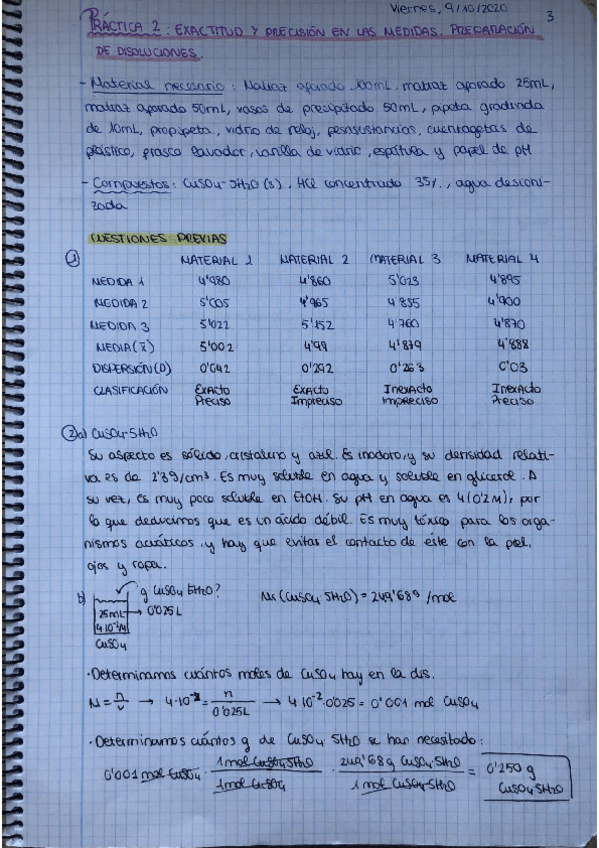 Viernes, 9/10/2020
3
PRÁCTICA 2: EXACTITUD Y PRECISIÓN EN LAS MEDIDAS. PREPARACIÓN
DE DISOLUCIONES.
- Material necesario: Matraz aforado 100mL, matraz aforado 25mL,
matraz aforado 50mL, vasos de precipitado 50mL, pipeta graduada
de 10mL, propipeta, vidrio de reloj, pesasustancias, cuentagotas de
plástico, frasco lavador, varilla de vidrio, espátula y papel de pH
- Compuestos: CuSO4·5H2O (s), HCl concentrado 35%, agua desioni-
zada
CUESTIONES PREVIAS
1 MATERIAL 1 MATERIAL 2 MATERIAL 3 MATERIAL 4
MEDIDA 1 4'980 4'860 5'023 4'895
MEDIDA 2 5'005 4'965 4'855 4'900
MEDIDA 3 5'022 5'152 4'760 4'870
MEDIA (x̄) 5'002 4'99 4'879 4'888
DISPERSIÓN (D) 0'042 0'292 0'263 0'03
CLASIFICACIÓN Exacto Exacto Inexacto Inexacto
Preciso Impreciso Impreciso Preciso
2 a) CuSO4·5H2O
Su aspecto es sólido, cristalino y azul. Es inodoro, y su densidad relati-
va es de 2'39/cm³. Es muy soluble en agua y soluble en glicerol. A
su vez, es muy poco soluble en EtOH. Su pH en agua es 4 (0'2M), por
lo que deducimos que es un ácido débil. Es muy tóxico para los orga-
nismos acuáticos, y hay que evitar el contacto de éste con la piel,
ojos y ropa.
b) g CuSO4 5H2O? Mr (CuSO4 5H2O) = 249'689 /mol
25mL → 0'025L
4·10⁻²M
CuSO4
· Determinamos cuántos moles de CuSO4 hay en la dis.
M = n/v → 4·10⁻² = n/0'025L → 4·10⁻²·0'025 = 0'001 mol CuSO4
· Determinamos cuántos g de CuSO4 5H2O se han necesitado:
0'001 mol CuSO4 · 1 mol CuSO4·5H2O/1 mol CuSO4 · 249'68g CuSO4·5H2O/1 mol CuSO4·5H2O = 0'250 g
CuSO4·5H2O